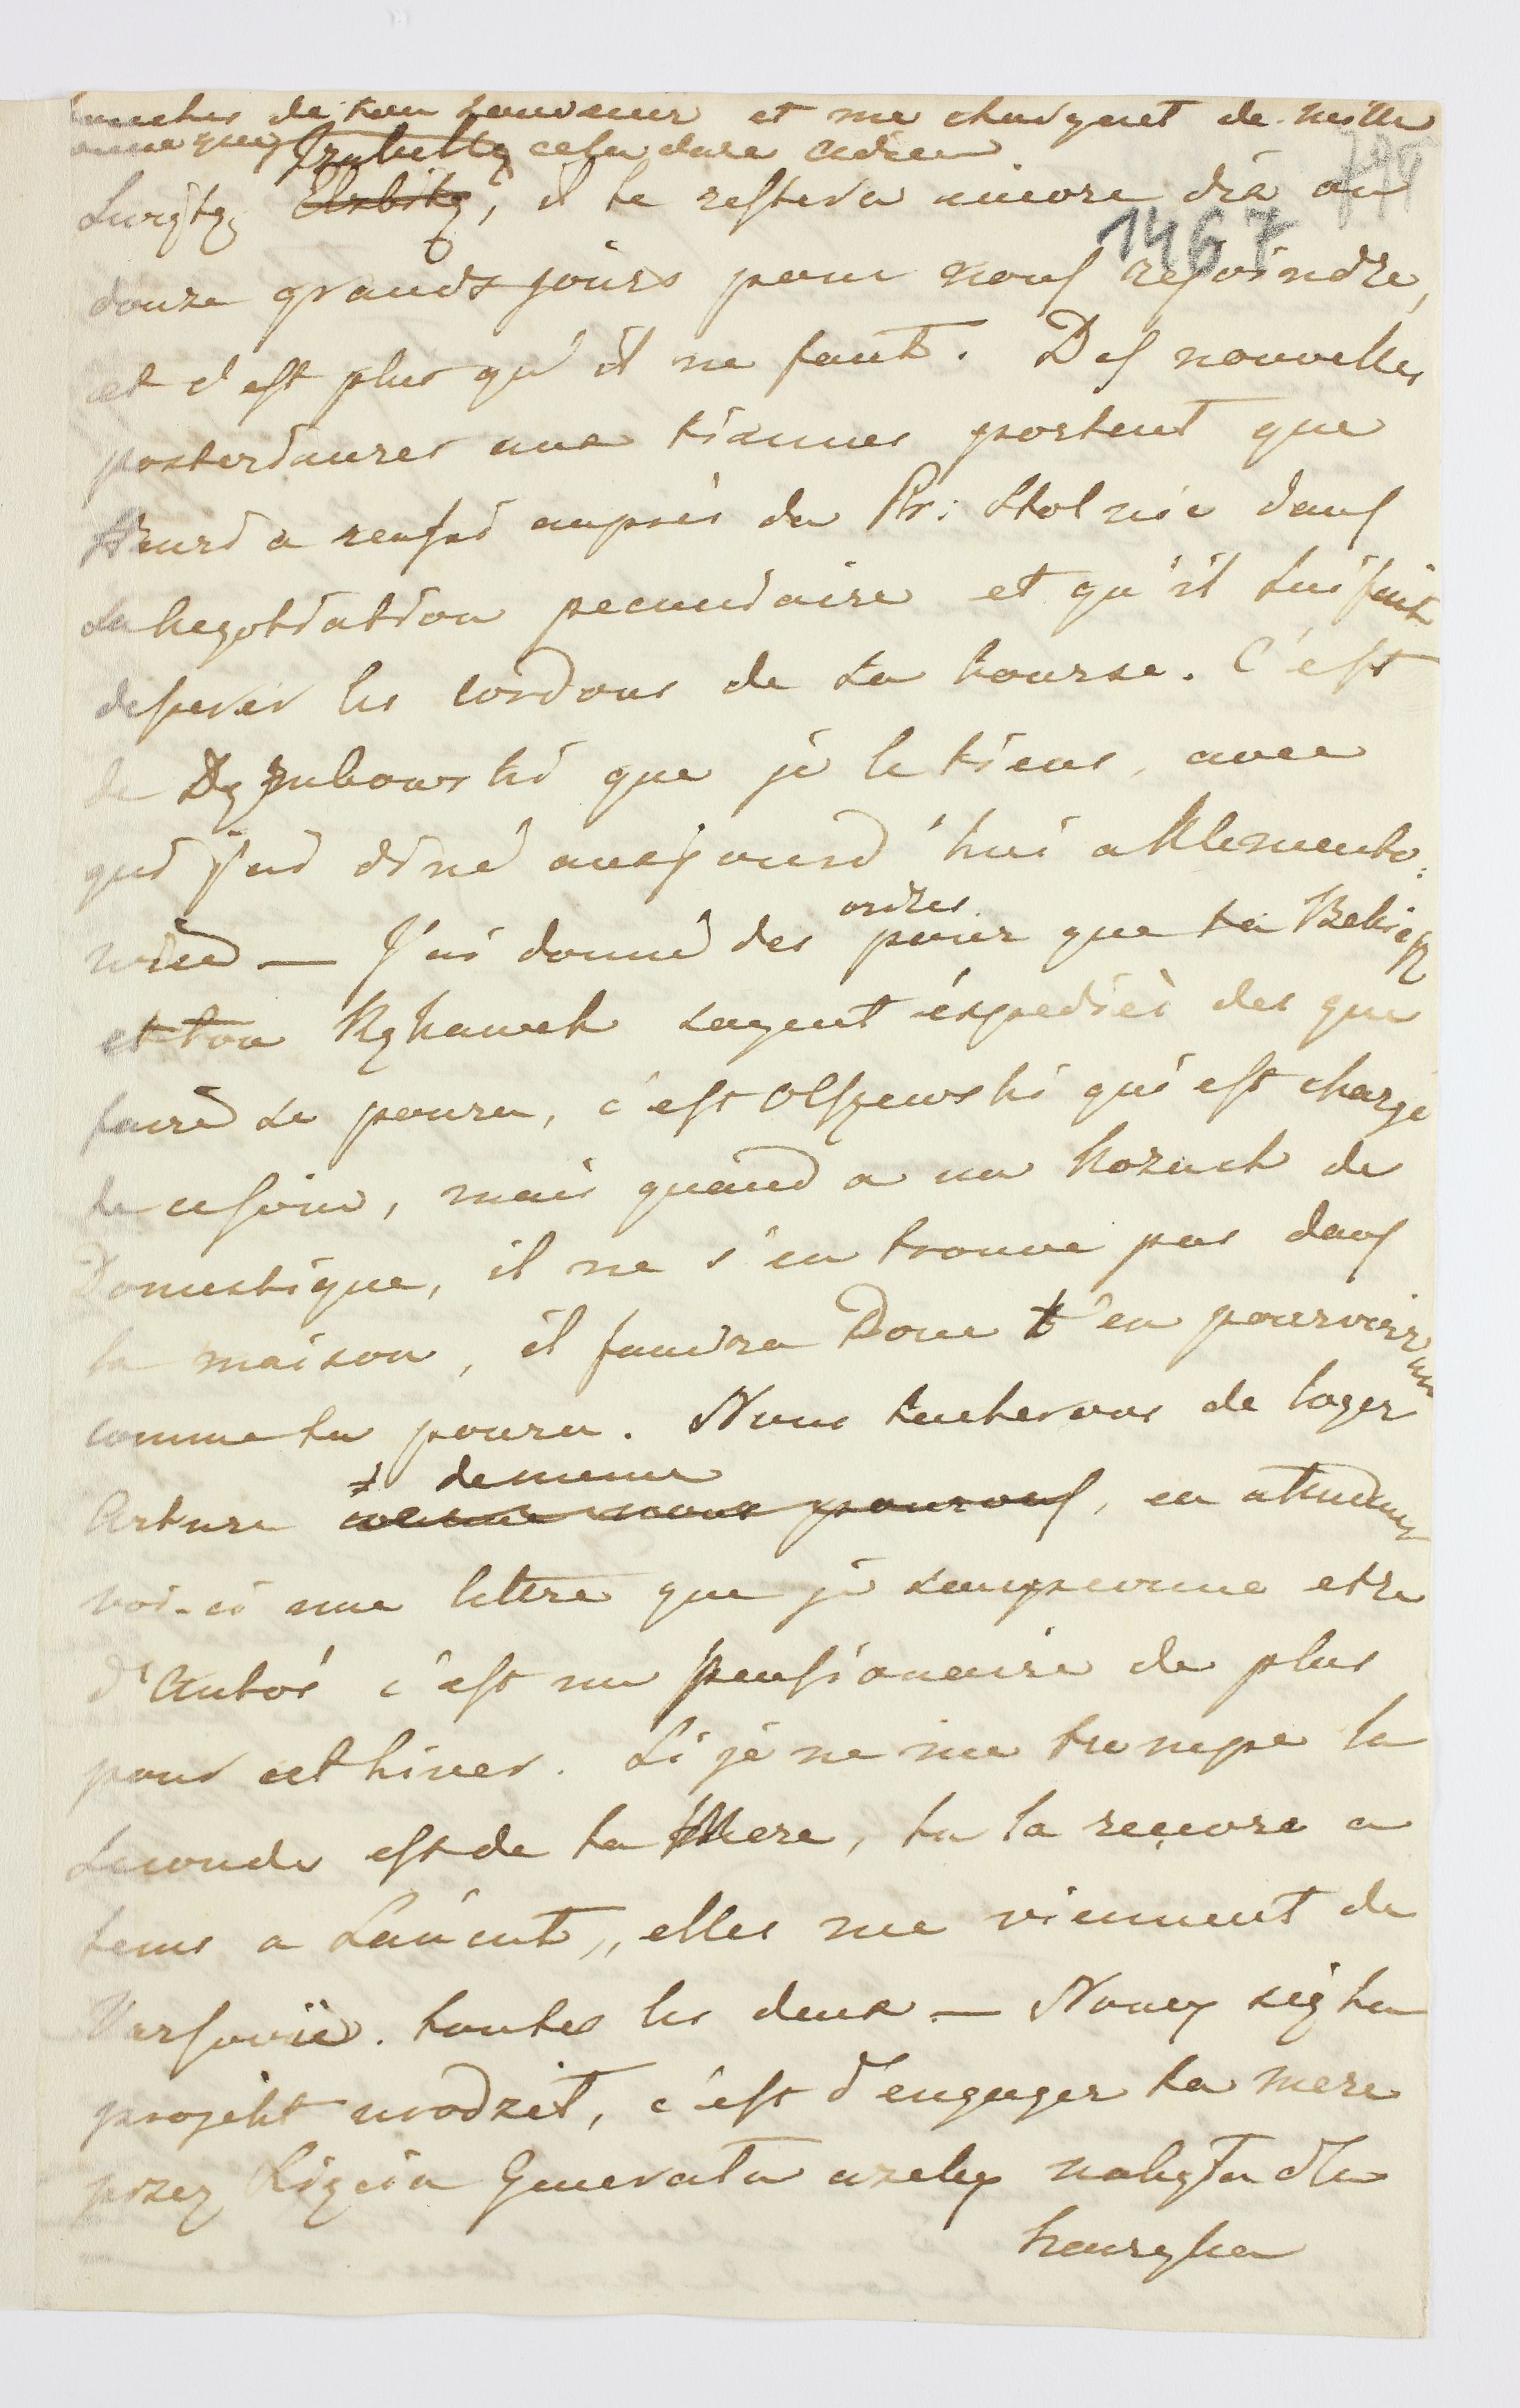 touches de ton souvenir et me chargent de mille
Izabellę cela dura adieu
Swiętą Elzbitę, il te restera encore dix ou
1467
douze grands jours pour nous rejoindre,
et c'est plus qu'il ne faut. Des nouvelles
posterieures aux tiennes portent que
a reussi auprès du Pr: Stolnic dans
sa negotiation pecuniaire et qu'il lui fait
desserer les cordons de sa bourse. C'est
de Dzembowski que je le tiens, avec
qui j'ai diné aujourd'hui a Klemento:
wice — J'ai donné des ordres pour que ta
et ton soyent éxpediés des que
faire se poura, c'est Olszewski qui est chargé
de ce soin, mais quand a un Kozack de
Domestique, il ne s'en trouve pas dans
la maison, il faudra Donc t'en pourvoir un
comme tu poura. Nous tacherons de loger
Arture de meme comme nous pourons, en attendant
voi-ci une lettre que je soupconne etre
d'Antoś c'est un pensionaire de plus
pour cet hiver. Si je ne me trompe la
seconde est de ta Mere, tu la recevra a
tems a Lancut,, elles me viennent de
Varsovie. toutes les deux — Nowy się tu
projekt urodzit, c'est d'engager ta mere
przez Xięcia Generata azeby nabyta dla